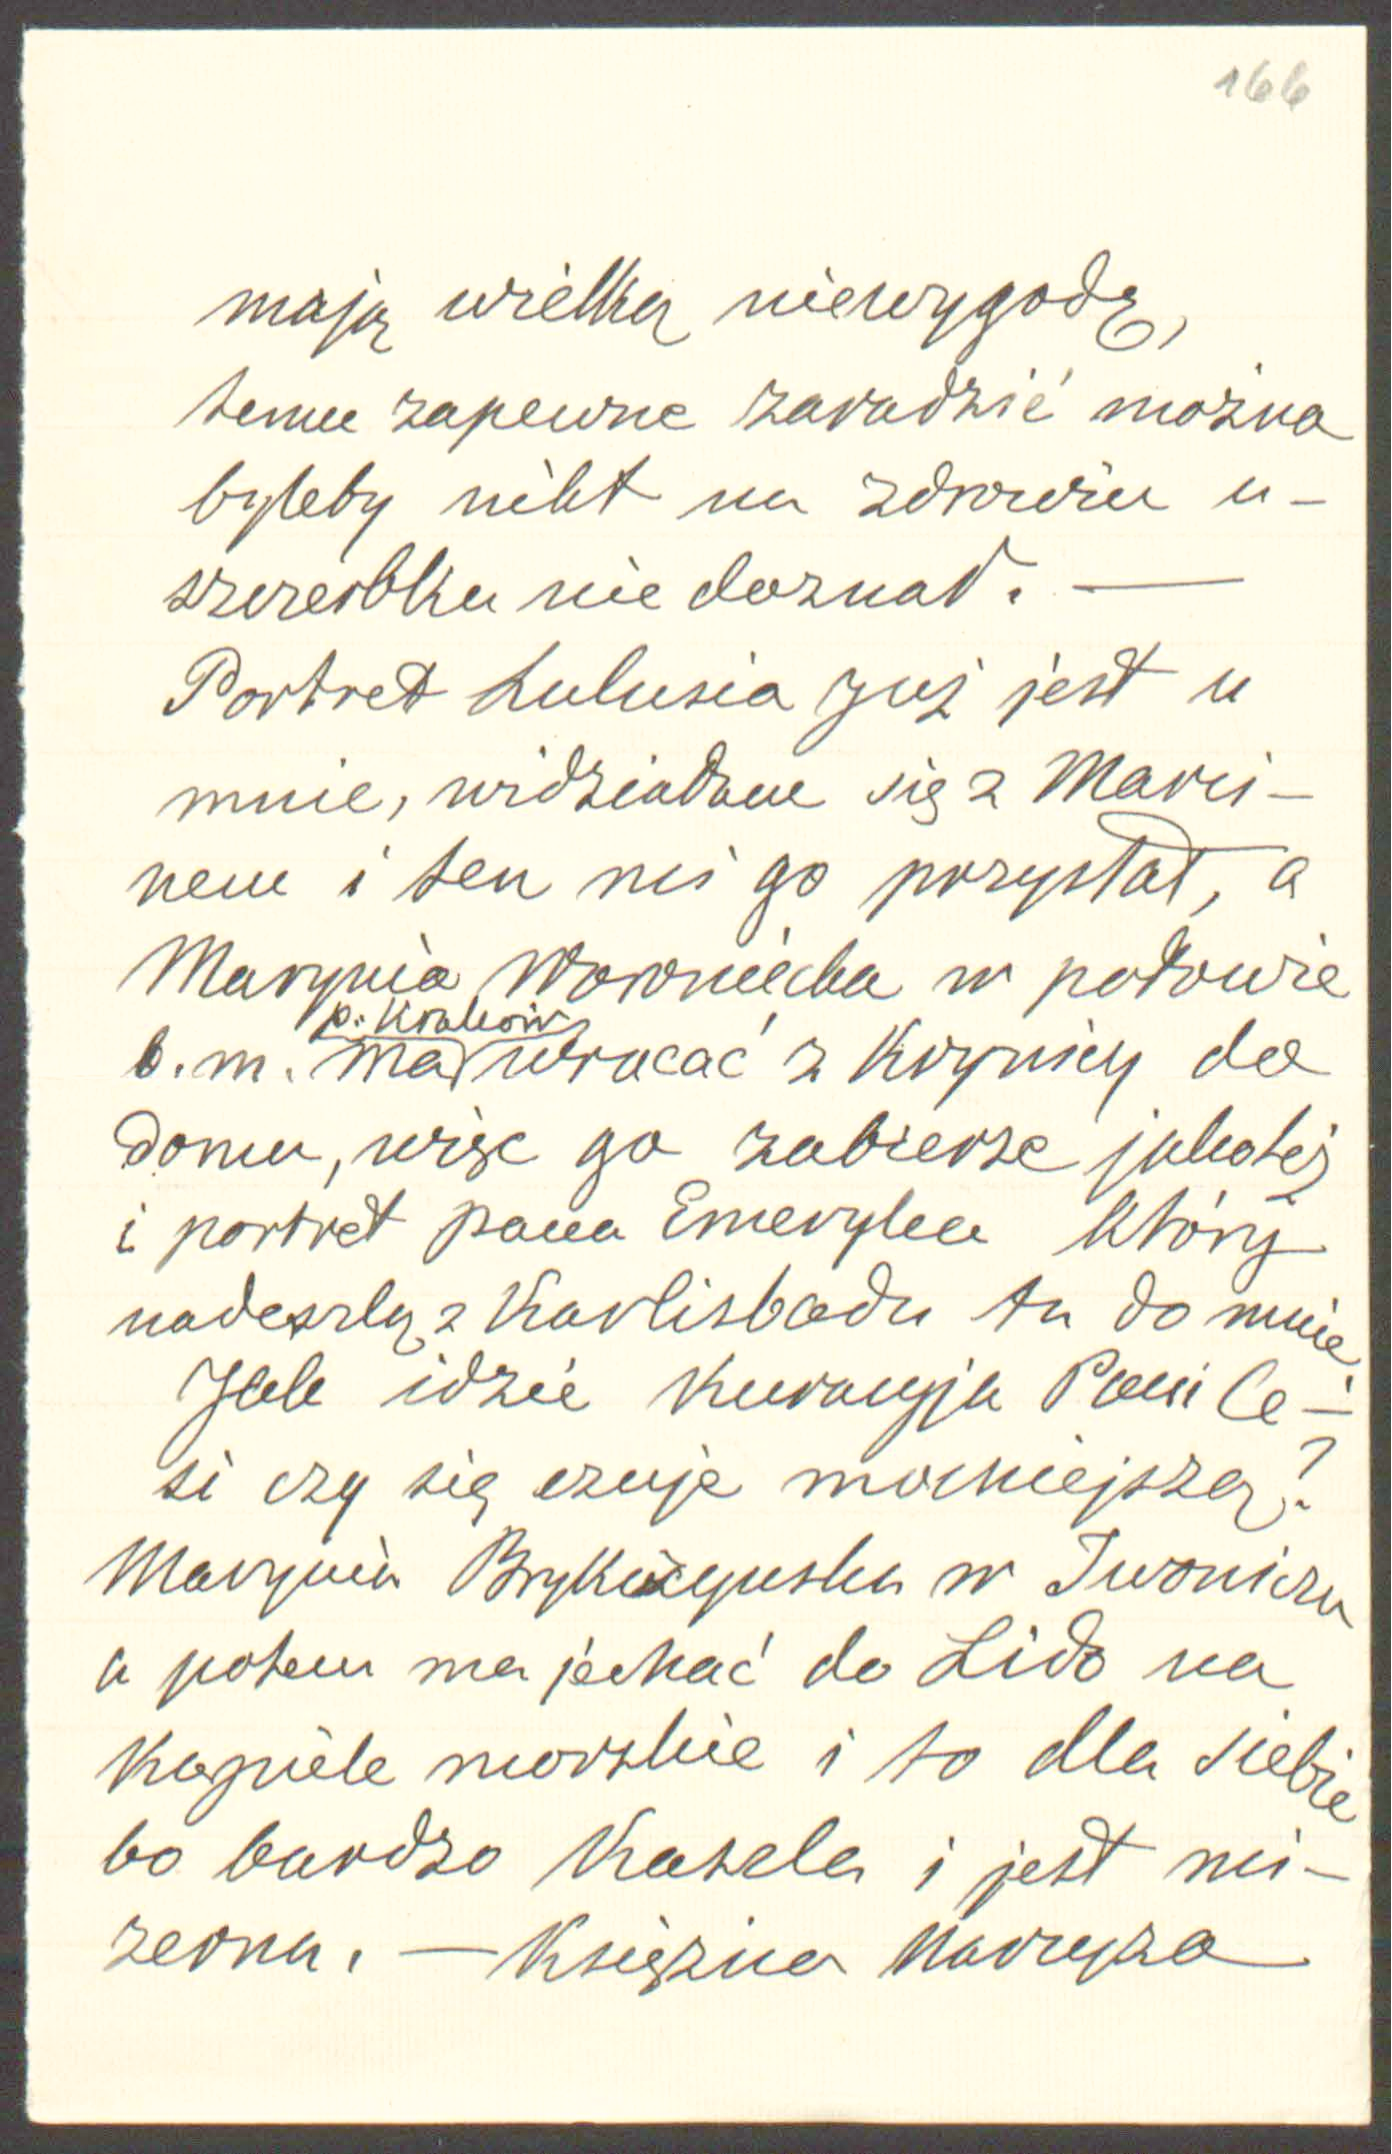 166
mają wielką niewygodę,
temu zapewne zaradzić można
byleby nikt na zdrowiu u-
szczerbku nie doznał. —
Portret Lulusia już jest u
mnie, widziałam się z Marci-
nem i ten mi go przysłał, a
Marynia Woroniecka w połowie
p. Kraków
b. m. ma wracać z Krynicy do
domu, więc go zabierze jakoteż
i portret pana Emeryka który
nadeszlą z Karlisbadu tu do mnie
Jak idzie kuracyja Pani Ce-
si czy się czuje mocniejszą?
Marynia w Iwoniczu
a potem ma jechać do Lido na
kąpiele morskie i to dla siebie
bo bardzo kaszla i jest mi-
zerna. — Księżna